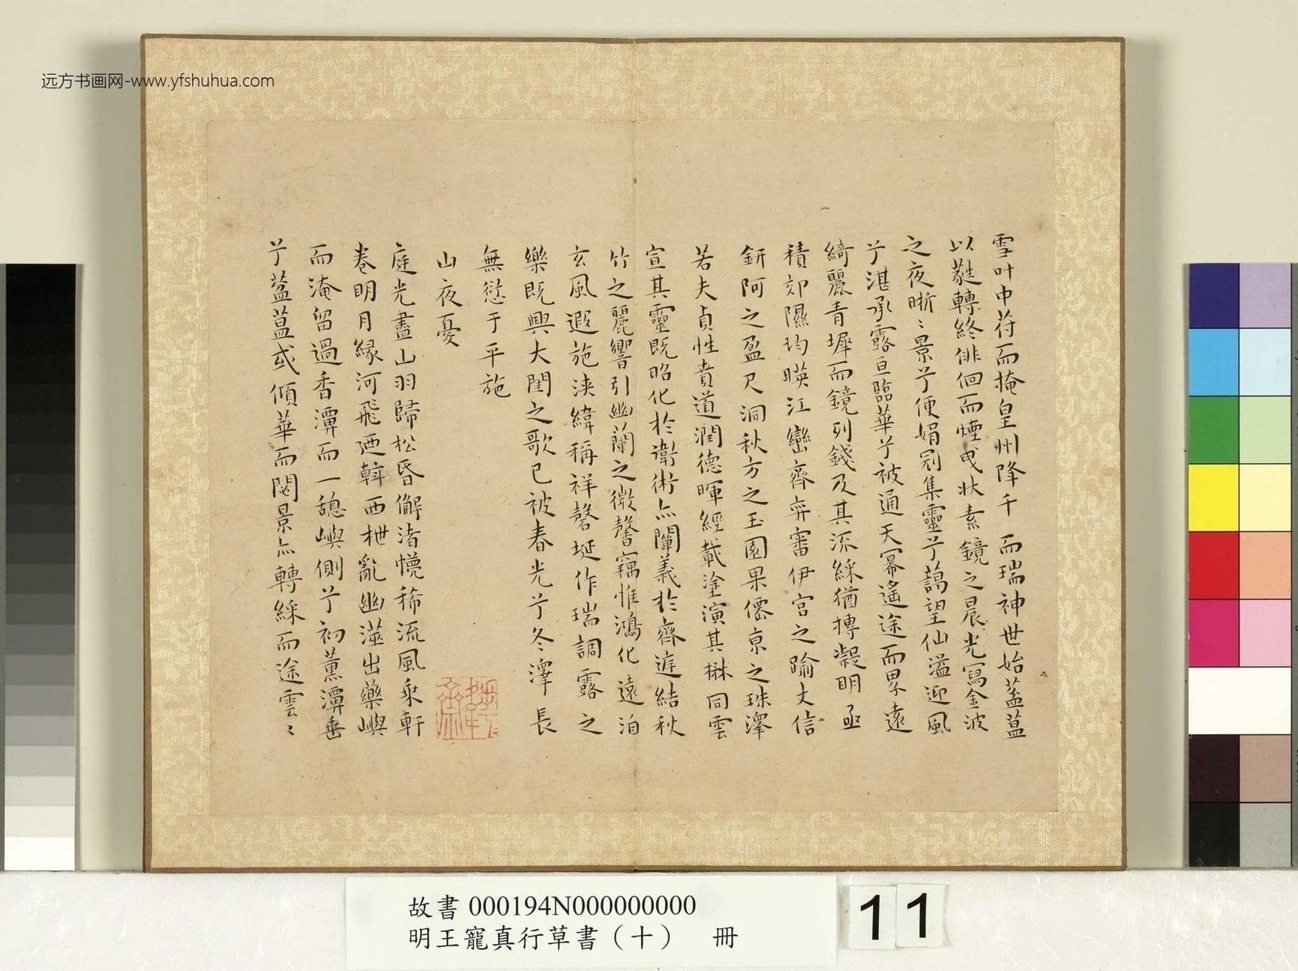 远方书画网-www.yfshuhua.com
雪叶中苻而掩皇州降千 而瑞神世始蓋葢
以蕤轉終俳佪而煙曳狀素鏡之晨光寫金波
之夜晰〻景兮便娟冠集靈兮藹望仙溢迎風
兮湛承露亘臨華兮被通天冪遙途而界遠
綺麗青墀而鏡列錢及其流綵猶摶凝明亟
積郊隰均暎江巒齊弈審伊宮之踰丈信
鈃阿之盈尺洞秋方之玉園果僊京之珠澤
若夫貞性賁道潤德暉經載塗演其 同雲
宣其靈既昭化於衛術亦闡義於齊遊結秋
竹之麗響引幽蘭之微馨竊惟鴻化遠洎
玄風遐施浹緯稱祥罄埏作瑞調露之
樂既興大閏之歌已被春光兮冬澤 長
無愆于平施
山夜憂
庭光盡山羽歸松昏解渚懬稀流風乘軒
卷明月緣河飛廼斡西枻亂幽澨出藥嶼
而淹留過香潭而一憩嶼側兮初薰潭垂
兮葢蒀或傾華而閟景亦轉綵而途雲〻
故書 000194N000000000
明王寵真行草書（十） 冊
11